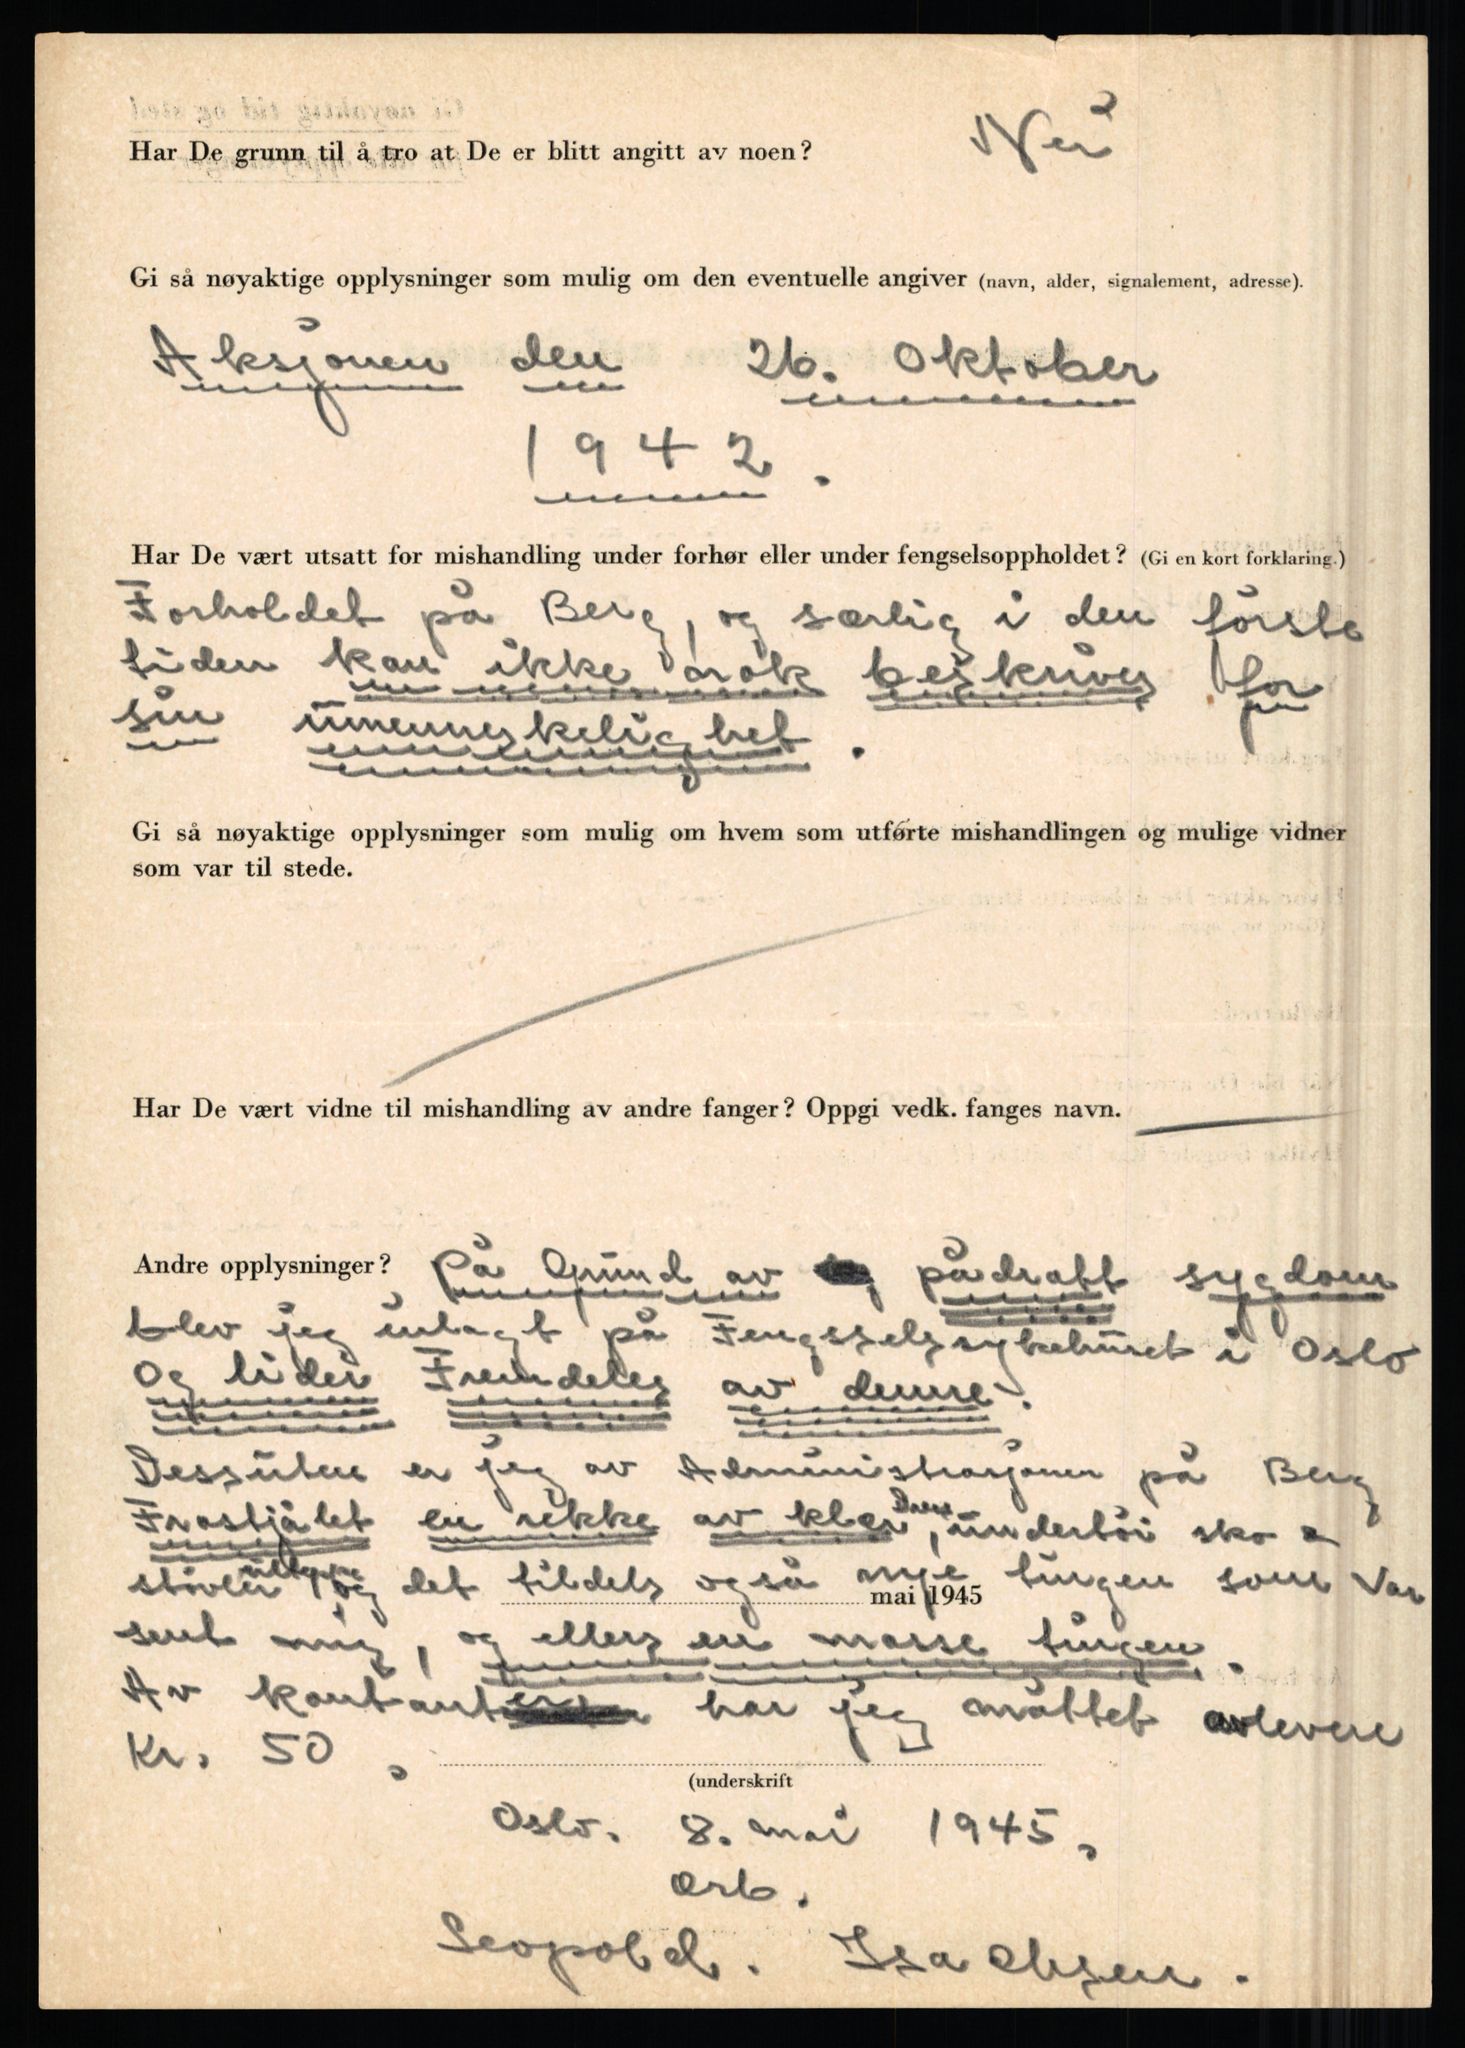 Har De grunn til å tro at De er blitt angitt av noen? Nei
Gi så nøyaktige opplysninger som mulig om den eventuelle angiver (navn, alder, signalement, adresse).
Aksjonen den 26. Oktober
1942.
Har De vært utsatt for mishandling under forhør eller under fengselsoppholdet? (Gi en kort forklaring.)
Forholdet på Berg, og særlig i den förste
tiden kan ikke nok beskrives for
sin umenneskelighet.
Gi så nøyaktige opplysninger som mulig om hvem som utførte mishandlingen og mulige vidner
som var til stede.
Har De vært vidne til mishandling av andre fanger? Oppgi vedk. fanges navn.
Andre opplysninger? På Grund av pådratt sygdom
blev jeg inlagt på Fengsselssykehuset i Oslo
Og lider Fremdeles av denne.
Dessuten er jeg av Administrasjonen på Berg
Frastjålet en rekke av klær, undertöi sko
stövler, og det tildels også nye tingen som var
mai 1945
sent mig, og ellers en masse tingen.
Av kontanter har jeg måttet avlevere
Kr. 50.
(underskrift
Oslo. 8. mai 1945.
Arb.
Leopold. Isachsen.